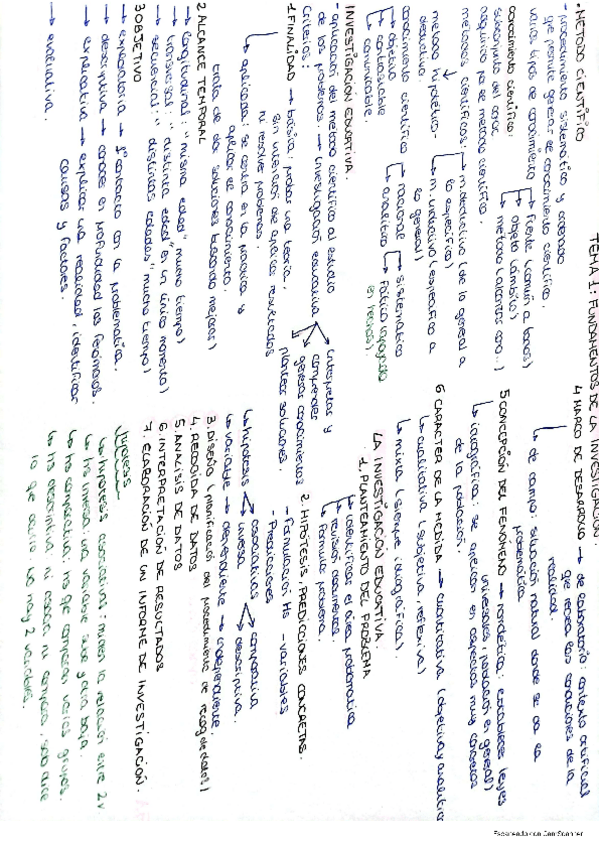 TEMA 1: FUNDAMENTOS DE LA INVESTIGACIÓN.
· MÉTODO CIENTÍFICO
- procedimiento sistemático y ordenado
que permite generar ese conocimiento científico.
varios tipos de conocimiento → Fuente (común a todos)
→ objeto (ámbito)
→ método (alcanzar cono...)
conocimiento científico:
subconjunto del conoc.
adquirido por el método científico.
métodos científicos: m. deductivo (de lo general a
lo específico)
m. inductivo (específico a
lo general)
método hipotético-
deductivo.
conocimiento científico
→ objetivo
→ contrastable
→ comunicable.
→ racional
→ analítico
→ sistemático
→ fáctico (apoyado
en hechos).
INVESTIGACIÓN EDUCATIVA.
- aplicación del método científico al estudio
de los problemas. → investigación educativa
→ interpretar y
comprender
→ generar conocimientos
→ plantear soluciones.
Criterios:
1. FINALIDAD → básica: probar una teoría.
sin intención de aplicar resultados
ni resolver problemas.
→ aplicada: se centra en la práctica y
aplica ese conocimiento.
trata de dar soluciones buscando mejoras)
2 ALCANCE TEMPORAL
→ longitudinal: "misma edad" mucho tiempo)
→ transversal: "distinta edad" en un único momento)
→ secuencial: "distintas edades" mucho tiempo)
3 OBJETIVO
→ exploratoria → 1º contacto con la problemática.
→ descriptiva → conocer en profundidad los fenómenos.
→ explicativa → explicar una realidad, identificar
causas y factores.
→ evaluativa.
4 MARCO DE DESARROLLO → de laboratorio: contexto artificial
que recrea las condiciones de la
realidad.
→ de campo: situación natural donde se da esa
problemática
5 CONCEPCIÓN DEL FENÓMENO → nomotética: establece leyes
universales, población en general)
→ idiográfica: se aplican en aspectos muy concretos
de la población.
6 CARÁCTER DE LA MEDIDA → cuantitativa (objetiva y analítica)
→ cualitativa (subjetiva, reflexiva)
→ mixta (siempre idiográfica).
LA INVESTIGACIÓN EDUCATIVA.
1. PLANTEAMIENTO DEL PROBLEMA
→ identificar el área problemática
→ revisión documentos.
→ formular problema.
2. HIPÓTESIS, PREDICCIONES CONCRETAS.
- formulación Hs
- Predicciones
- variables
→ hipótesis
→ asociativas
→ inversa
→ comparativa
→ descriptiva.
→ variable → dependiente → independiente
3. DISEÑO (planificación del procedimiento de recog de datos)
4. RECOGIDA DE DATOS
5 ANÁLISIS DE DATOS
6. INTERPRETACIÓN DE RESULTADOS
7. ELABORACIÓN DE UN INFORME DE INVESTIGACIÓN.
Hipótesis
→ hipótesis asociativas: miden la relación entre 2 v
→ hs inversa una variable sube y otra baja.
→ hs comparativa: ns que comparan varios grupos.
→ hs descriptiva ni asocia ni compara, solo dice
lo que ocurre no hay 2 variables.
Escaneado con CamScanner